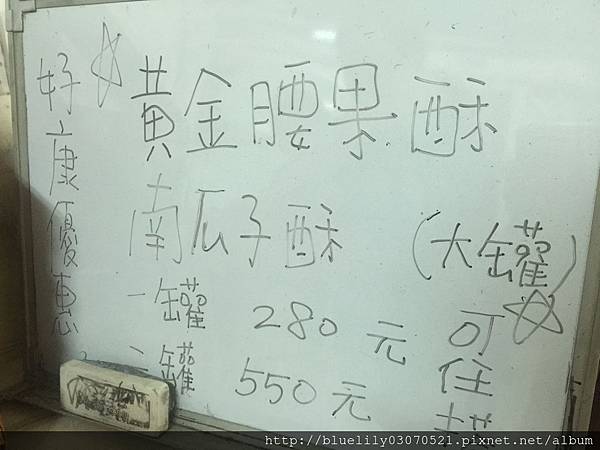 好康優惠
☆黃金腰果酥
南瓜子酥(大罐)
一罐 280元
二罐 550元
☆可任
http://bluelily03070521.pixnet.net/album